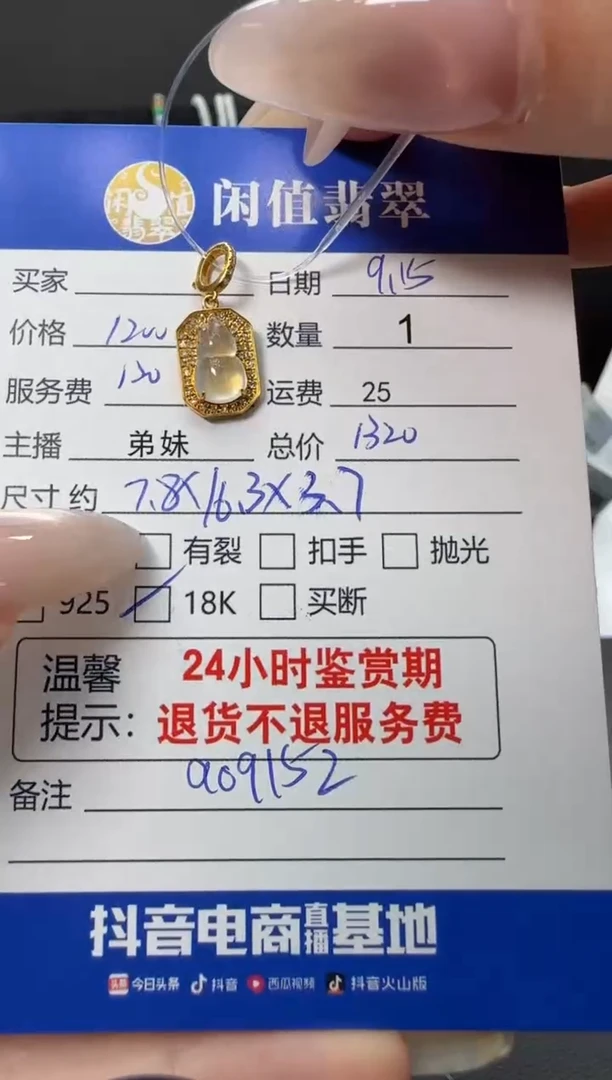 闲值翡翠
闲值翡翠
买家 日期 9.15
价格 1200 数量 1
服务费 120 运费 25
主播 弟妹 总价 1320
尺寸 约 7.8×16.3×3.7
有裂 扣手 抛光
925 18K 买断
温馨提示: 24小时鉴赏期
退货不退服务费
备注 a09152
抖音电商直播基地
头条 今日头条 抖音 西瓜视频 抖音火山版